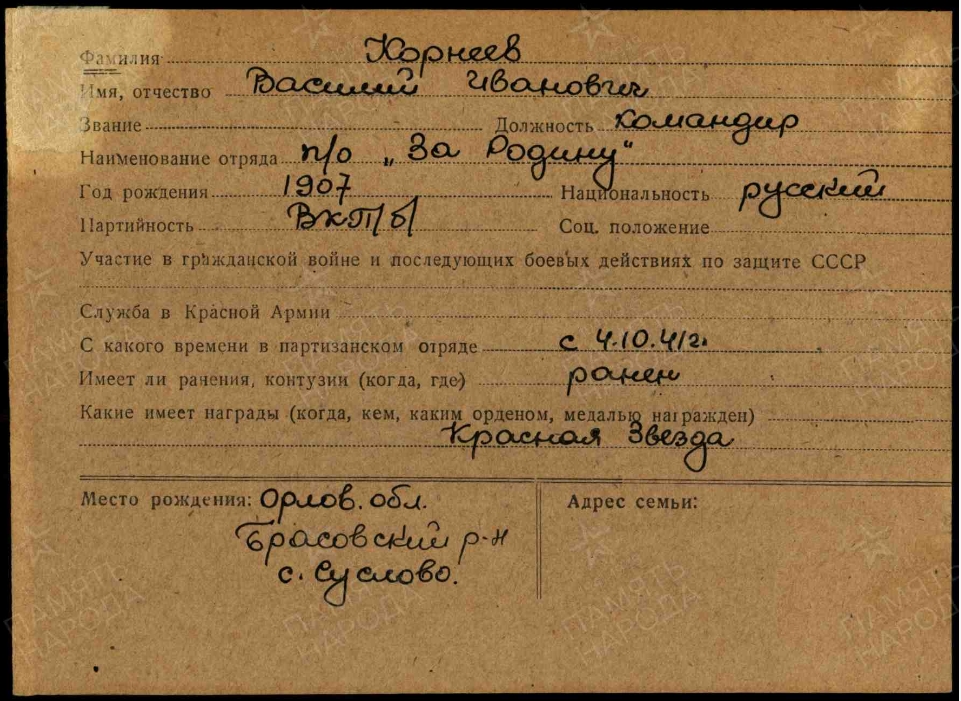 Фамилия Корнеев
Имя, отчество Василий Иванович
Звание Должность командир
Наименование отряда п/о „За Родину"
Год рождения 1907 Национальность русский
Партийность ВКП/б/ Соц. положение
Участие в гражданской войне и последующих боевых действиях по защите СССР
Служба в Красной Армии
С какого времени в партизанском отряде с 4.10.41г.
Имеет ли ранения, контузии (когда, где) ранен
Какие имеет награды (когда, кем, каким орденом, медалью награжден)
Красная Звезда
Место рождения: Орлов. обл. Адрес семьи:
Брасовский р-н
с. Суслово.
ПАМЯТЬ НАРОДА